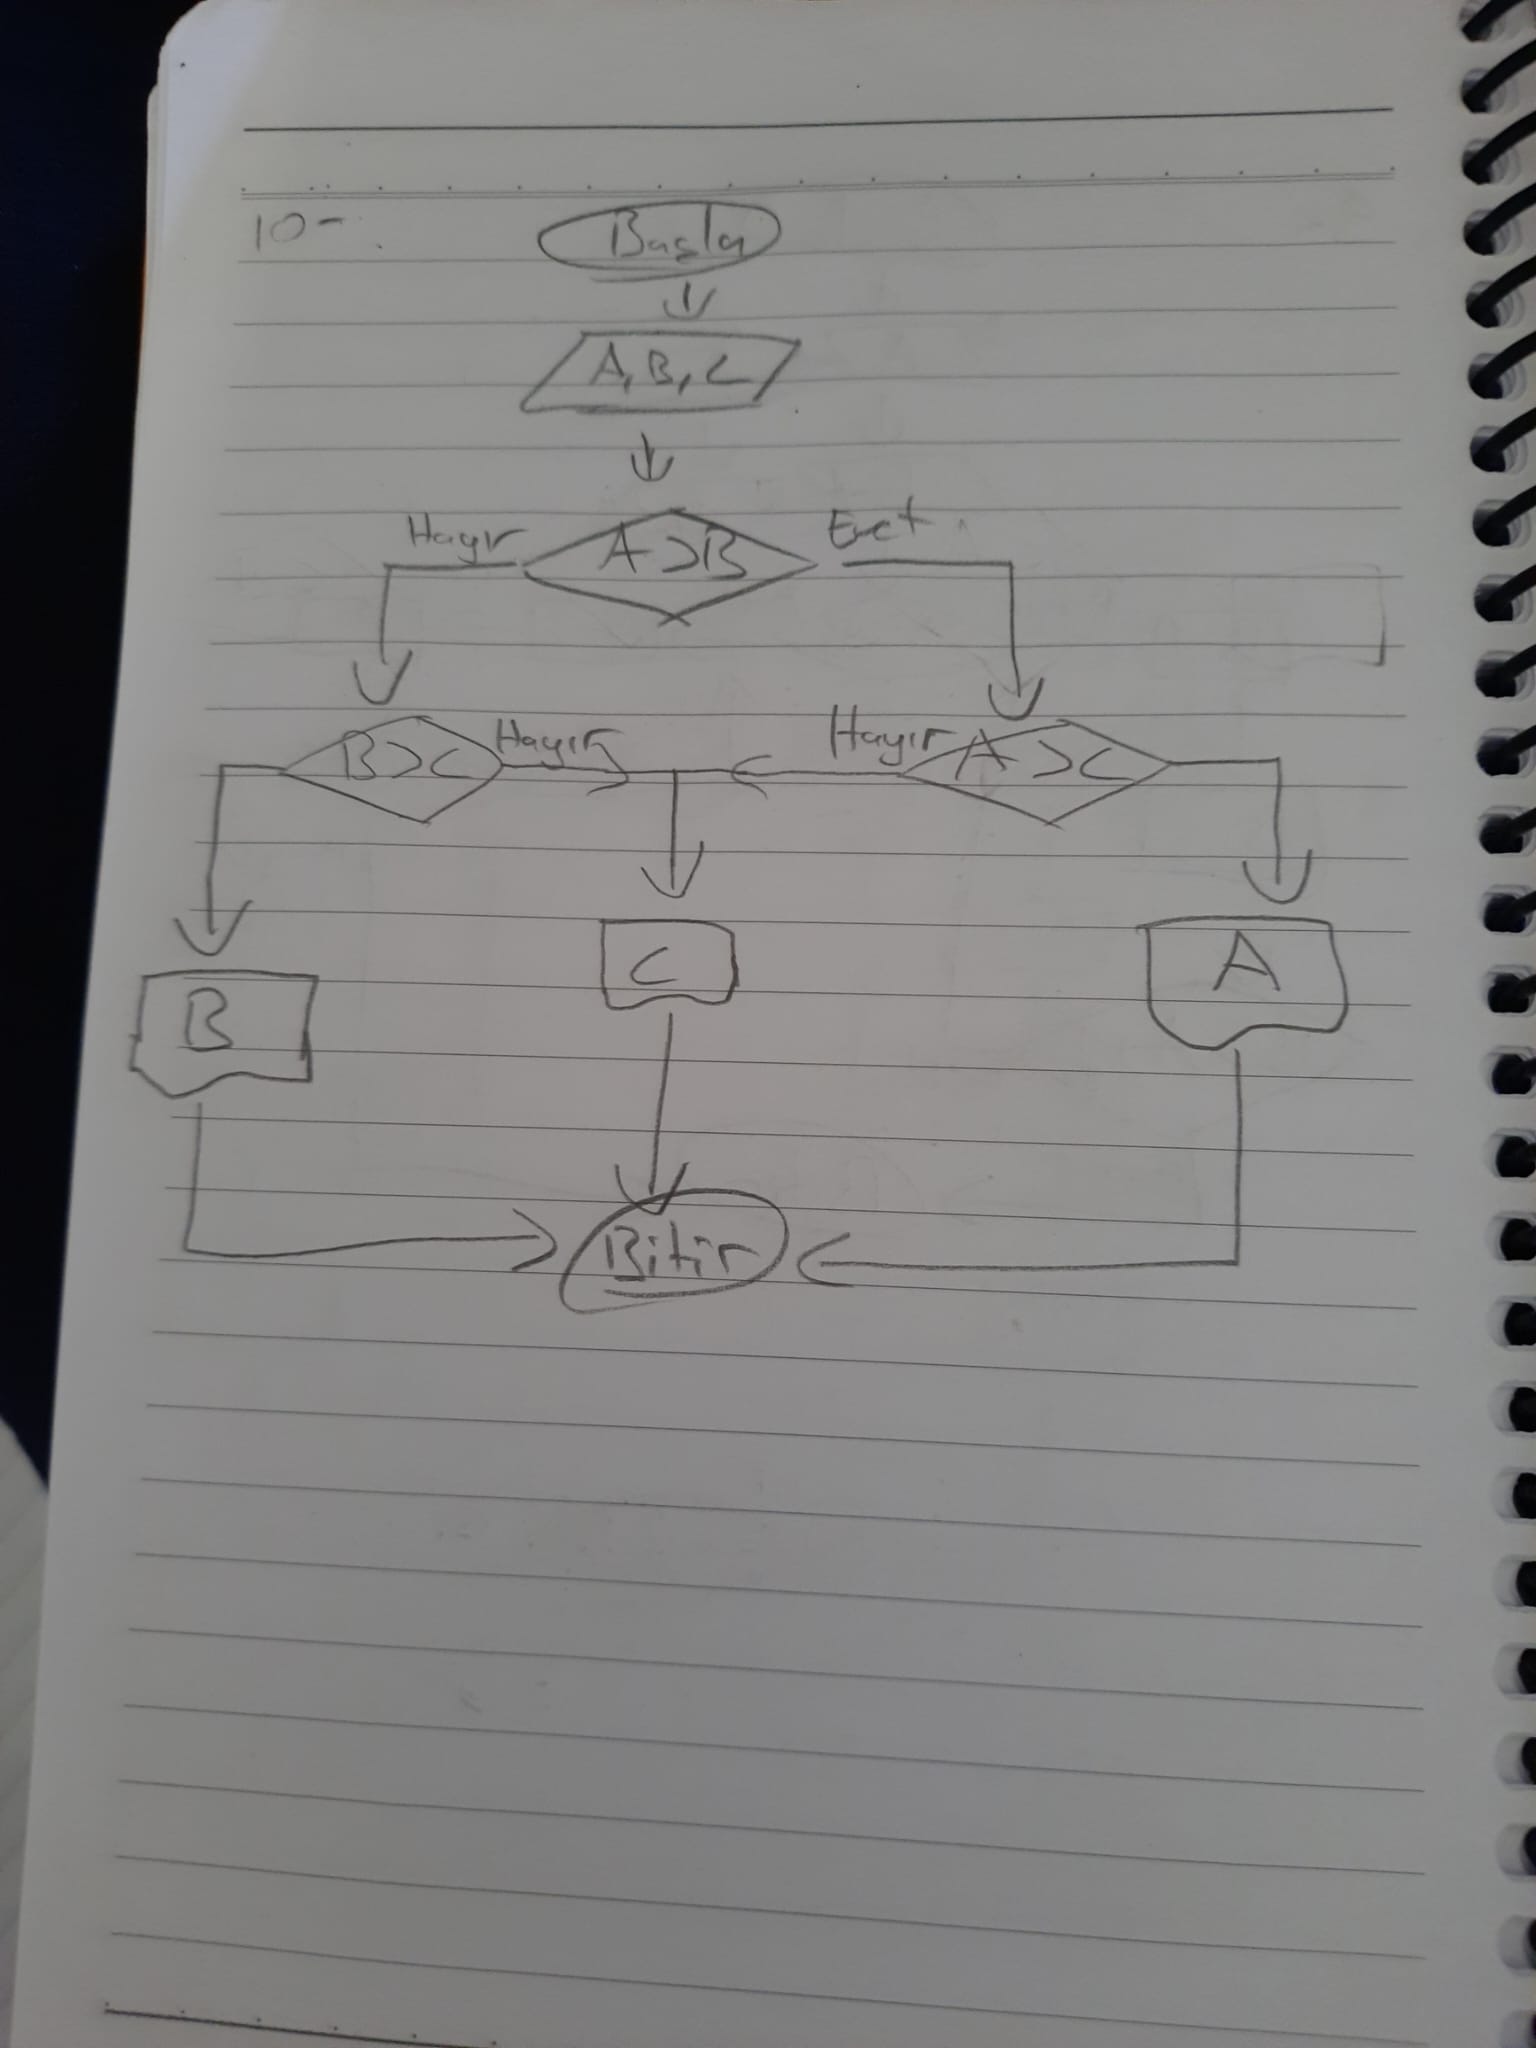 10-
Başla
A, B, C
Hayır
A>B
Evet
B>C
Hayır
Hayır
A>C
B
C
A
Bitir